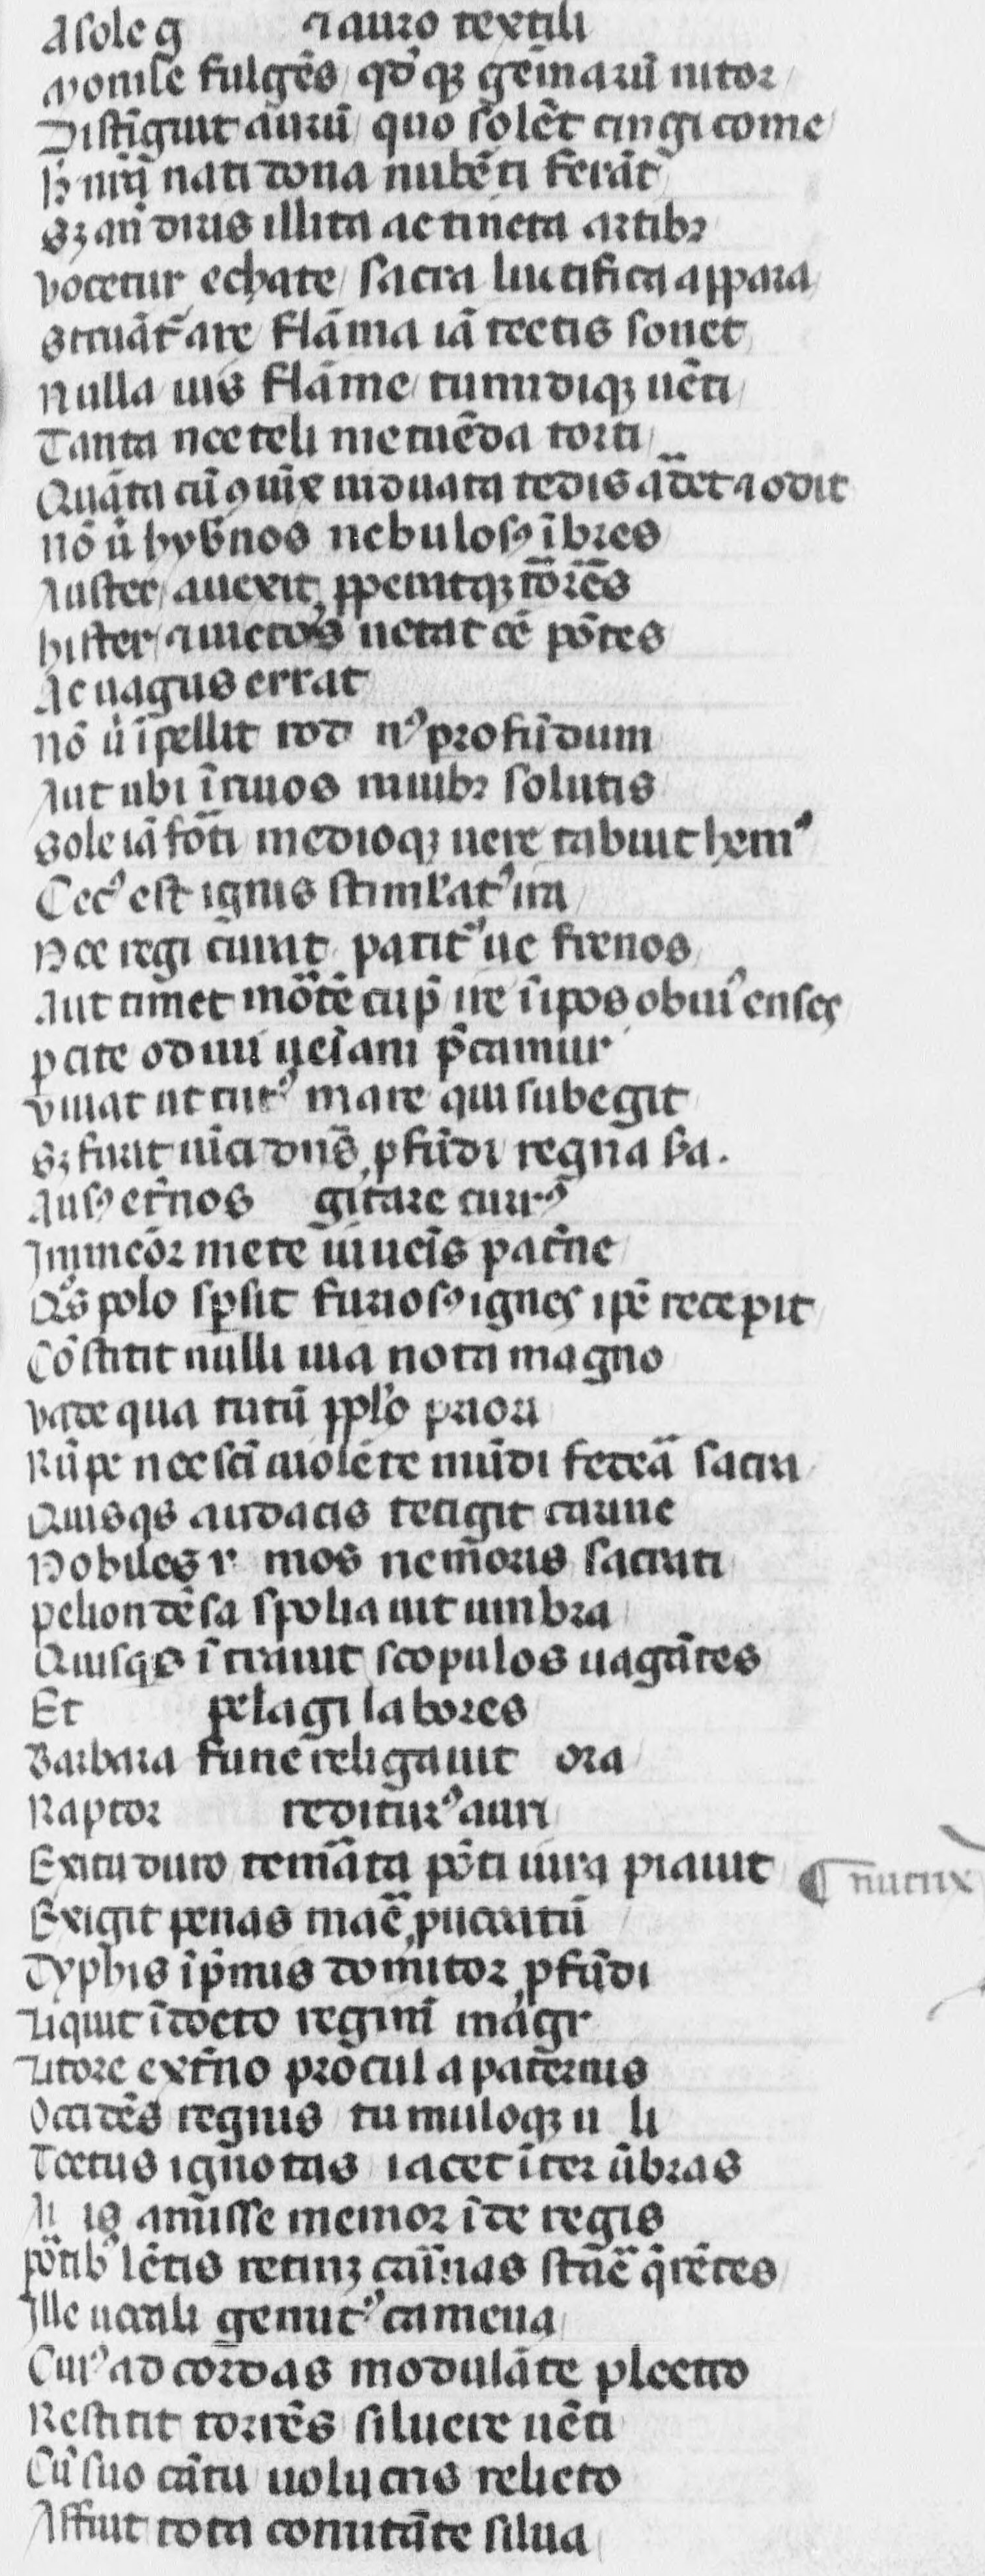 A sole g        ⁊ auro textili
monile fulgēs qd' qȝ gēmarū nitor
Distīguit aurū quo solēt cingi come
H nrī nati dona nubēti ferāt
Sȝ añ diris illita ac tincta artibꝫ
vocetur echate sacra luctifica appara
struāt' are flāma iā tectis sonet
Nulla uis flāme tumidiqȝ uēti
Tanta nec teli metuēda torti
Quāta cū ꝯiūx uiduata tedis ardet ⁊ odit
nō ū hybnos nebulosꝰ ībres
Auster auexit ꝓperatqȝ torrēs
hister ⁊ iūctos uetat cē pōtes
Ac uagus errat
nō ū īpellit rod nꝰ profūdum
Aut ubi ī riuos niuibꝫ solutis
Sole iā forti medioqȝ uere tabuit hemꝰ
Cecꝰ est ignis stimlatꝰ ira
Nec regi curat patit'ue frenos
Aut timet mortē cupit ire ī ipos obuiꝰ enses
pcite o diui ueīam pcamur
viuat ut tutꝰ mare qui subegit
Sȝ furit uīci dn̄s ꝓfūdi regna ßa.
Ausꝰ et'nos    gitare currꝰ
Immeōr mete iuueīs pat'ne
Qs polo spsit furiosꝰ ignes ipē recepit
Cōstitit nulli uia nota magno
vade qua tutū ppl'o priori
Rūpe nec scā uiolēte mūdi federā sacra
Quisqs audacis tetigit carine
Nobiles r  mos nemoris sacrati
pelion dēsa spoliauit umbra
Quisqs ī trauit scopulos uagātes
Et        pelagi labores
Barbara fune religauit   ora
Raptor        rediturꝰ auri
Exitu diro temᵃta pōti iura piauit
¶ nutrix
Exigit penas maē ꝓuocatū
Typhis ī pmis domitor ꝓfūdi
Liquit īdocto regimī magr
Litore ext'no procul a paternis
Occidēs regnis tumuloqȝ u  li
Tectus ignotas iacet īter ūbras
A  is amisse memor īde regis
portibꝰ lētis retinȝ carinas stare qrētes
Ille uocali genitꝰ camena
Cuiꝰ ad cordas modulāte plectro
Restitit torrēs siluere uēti
Cū suo cātu uolucris relicto
Affuit tota comitāte silua